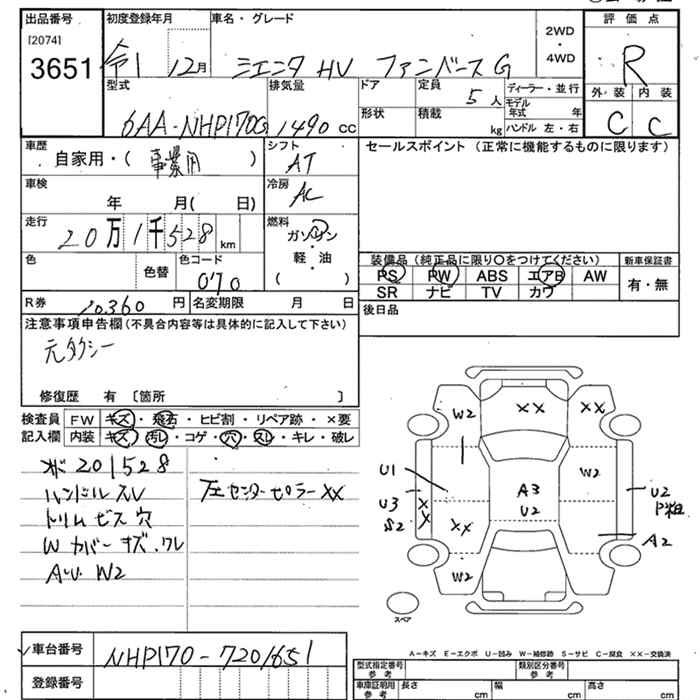 出品番号
[2074]
3651
初度登録年月
令1 12月
車名・グレード
シエンタ HV ファンベースG
2WD
・
4WD
評価点
R
外装 内装
C C
型式
6AA-NHP170G
排気量
1490 cc
ドア
形状
定員
5人
積載
kg
ディーラー・並行
モデル年式 年
ハンドル 左・右
車歴
自家用・( 事業用 )
シフト
AT
車検
年 月( 日)
冷房
AC
走行
20万1千528 km
燃料
ガソリン
軽・油
( )
色
色替
色コード
070
R券
10360 円
名変期限 月 日
セールスポイント (正常に機能するものに限ります)
装備品 (純正品に限り○をつけてください)
PS PW ABS エアB AW
SR ナビ TV カワ
新車保証書
有・無
後日品
注意事項申告欄 (不具合内容等は具体的に記入して下さい)
元タクシー
修復歴 有 〔箇所 〕
検査員
記入欄
FW キズ・飛石・ヒビ割・リペア跡・×要
内装 キズ・汚レ・コゲ・穴・スレ・キレ・破レ
メーター 201528
ハンドルスレ
トリムビス穴
Wカバーキズ.ワレ
AU W2
左センターピラーXX
W2
XX
XX
U1
W2
A3
U2
U3
S2
XX
XX
U2
P粗
A2
W2
スペア
A-キズ E-エクボ U-凹み W-補修跡 S-サビ C-腐食 XX-交換済
車台番号
NHP170-7201651
登録番号
型式指定番号
参考
類別区分番号
参考
車庫証明用
参考
長さ cm
幅 cm
高さ cm